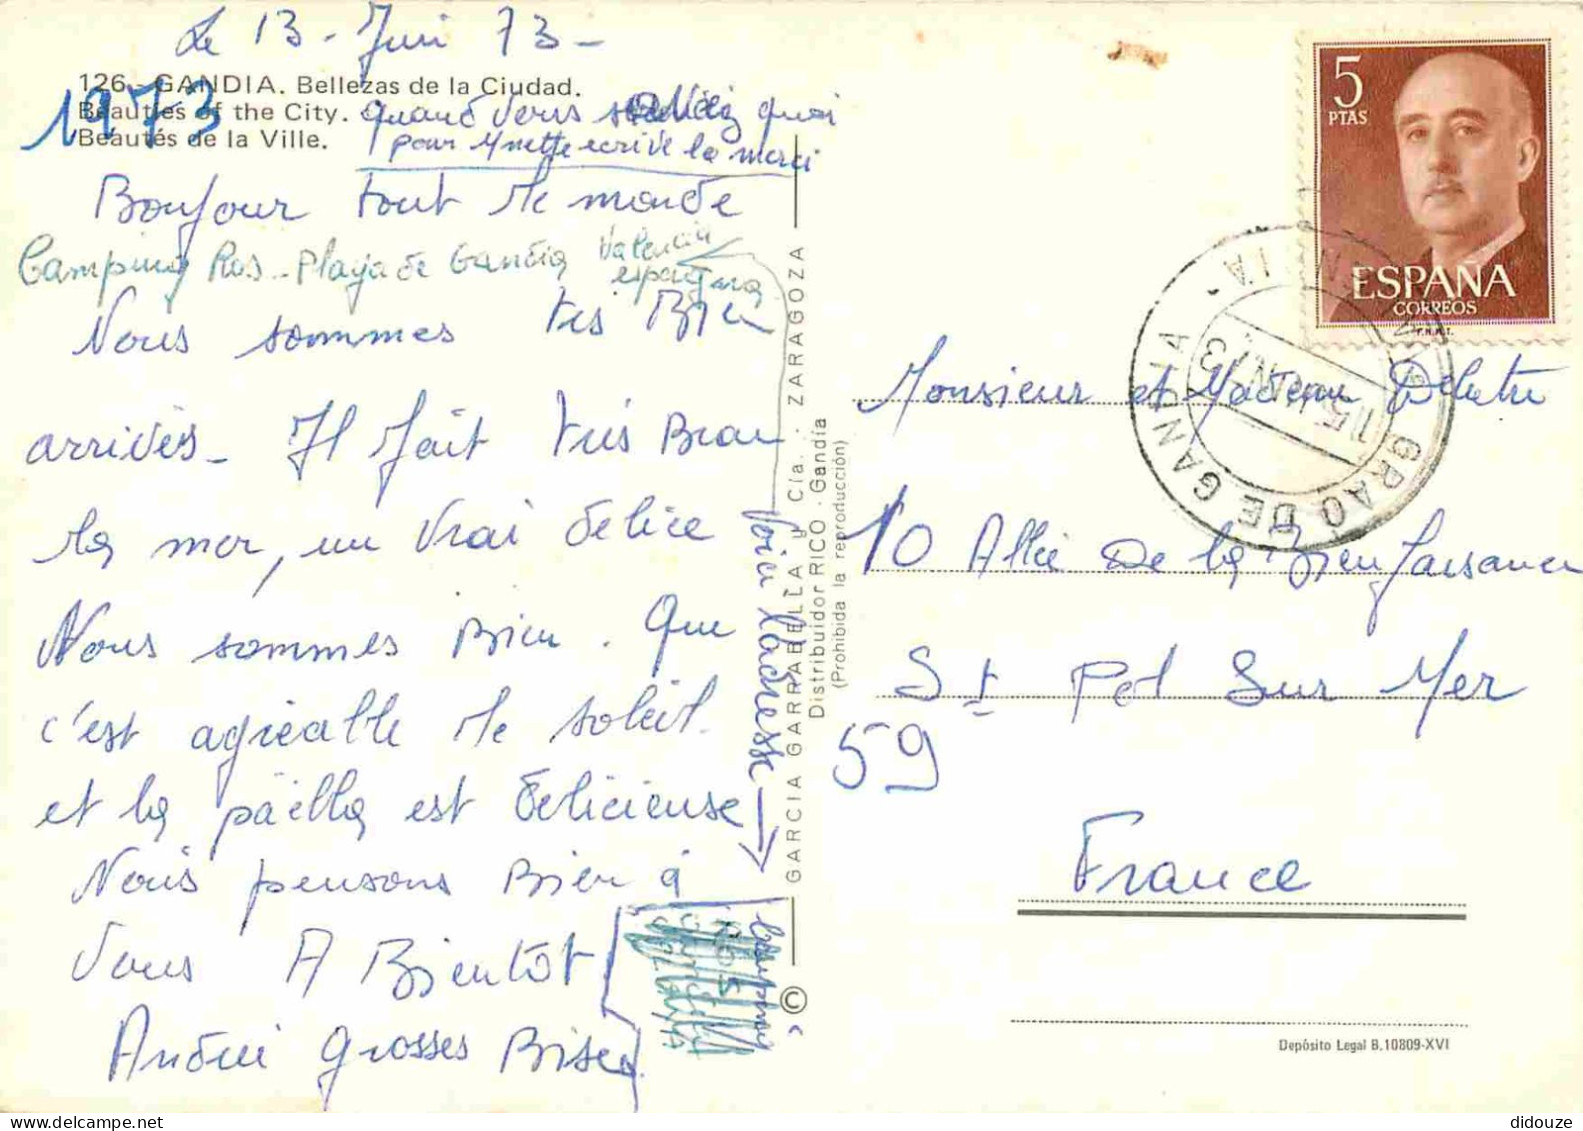 Le 13 - Juin 73 -
126.- GANDIA. Bellezas de la Ciudad.
Beauties of the City.
Beautés de la Ville.
1973
quand vous quoi
pour Ynette ecrivé la merci
Bonjour tout le monde
Camping Ros - Playa de Gandia Valencia
espagna
Nous sommes très Bien
arrivés - Il fait très Beau
la mer, un vrai délice
Nous sommes Bien. Que
c'est agréable le soleil.
et la paëlla est délicieuse
Nous pensons Bien à
vous A Bientôt
André Grosses Bises
voici l'adresse →
Camping
ROS
GARCIA GARRABELLA y Cia. - ZARAGOZA
Distribuidor RICO - Gandía
(Prohibida la reproducción)
©
5
PTAS
ESPAÑA
CORREOS
F.N.M.T.
GRAO DE GANDIA
15 JUN. 73
Monsieur et Madame Delutre
10 Allée De la Bienfaisance
St Pol Sur Mer
59
France
Depósito Legal B. 10809-XVI
didouze